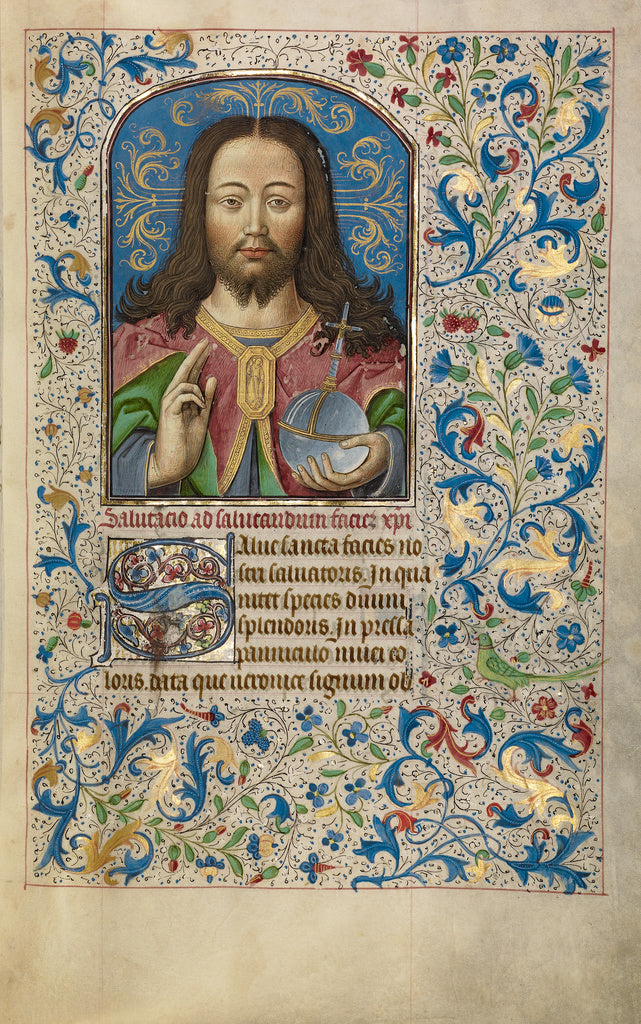 Salutacio ad salutandum faciez xp̄i
Salue sancta facies no
stri saluatoris. In qua
nitet species diuini
splendoris. In pressa
panniculo niuei co
loris. data que ueronice signum ob